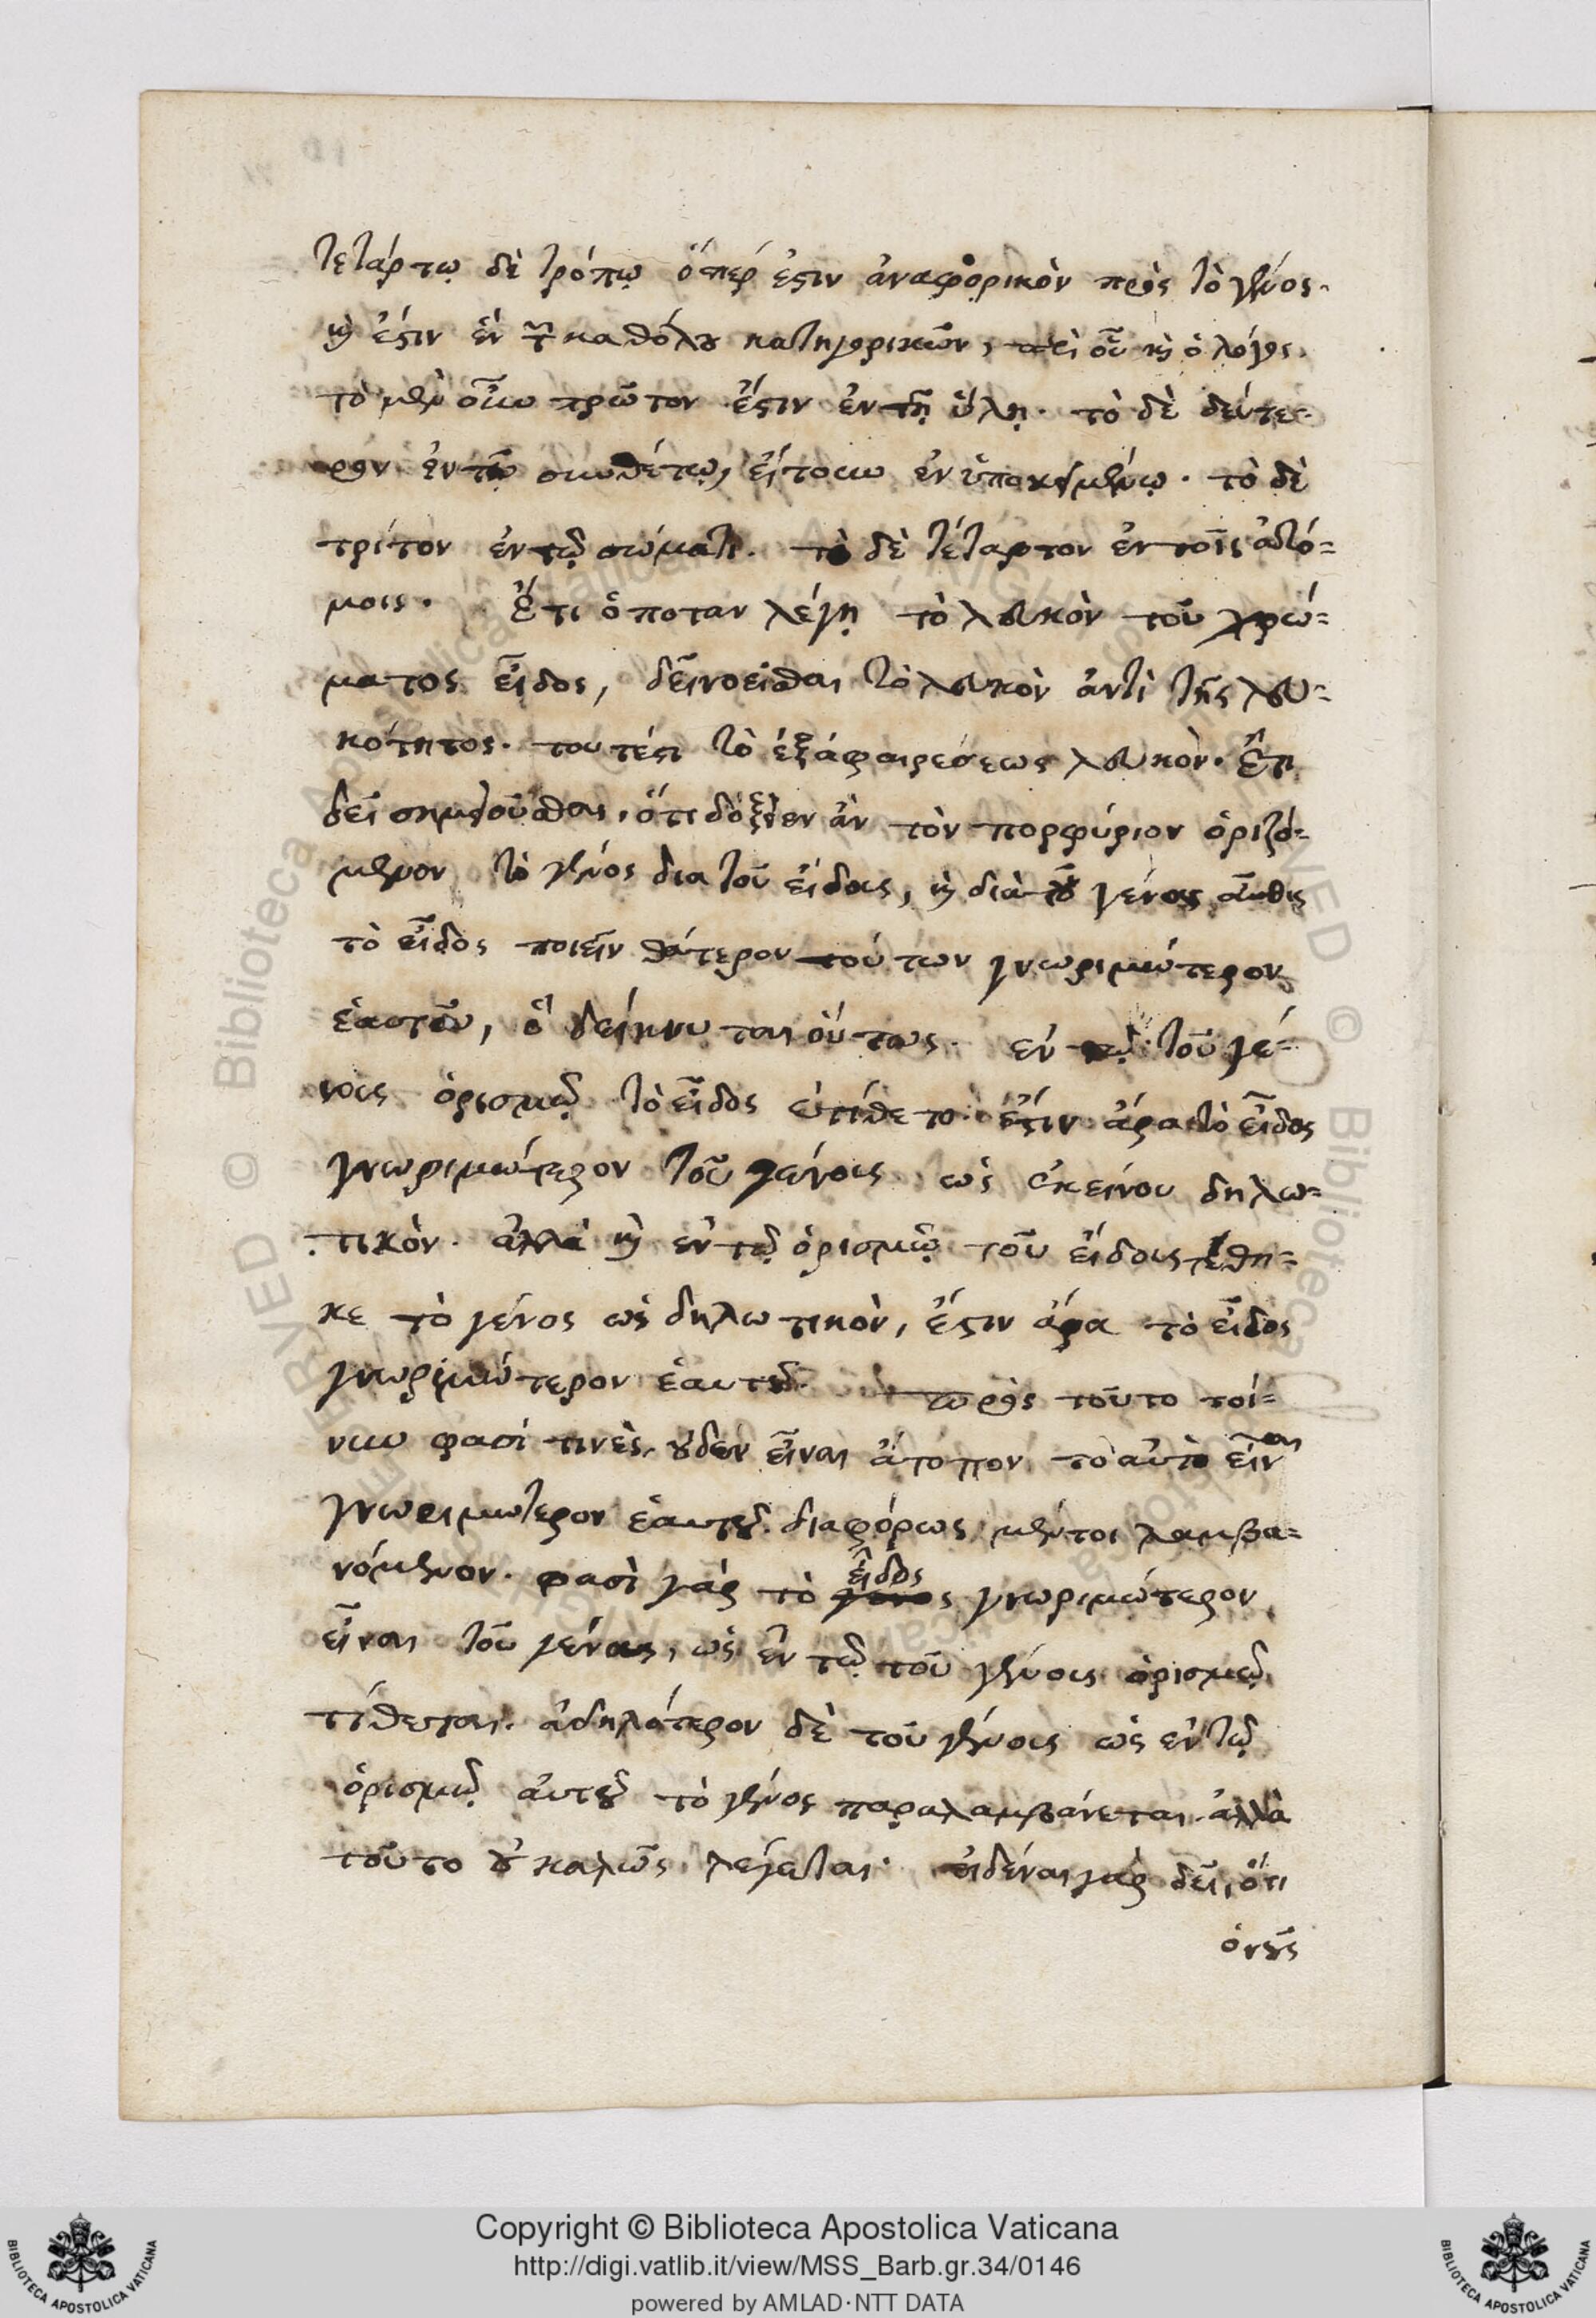 τετάρτῳ δὲ τρόπῳ ὅπέρ ἐστιν ἀναφορικὸν πρὸς τὸ γένος.
καὶ ἔστιν ἓν τῶν καθόλου κατηγορικῶν, περὶ οὗ καὶ ὁ λόγος.
τὸ μὲν οὖν πρῶτον ἔστιν ἐν τῇ ὕλῃ. τὸ δὲ δεύτε-
ρον ἐν τῷ συνθέτῳ, εἴτουν ἐν ὑποκειμένῳ. τὸ δὲ
τρίτον ἐν τῷ σώματι. τὸ δὲ τέταρτον ἐν τοῖς ἀτό=
μοις. Ἔτι ὁπόταν λέγῃ τὸ λευκὸν τοῦ χρώ=
ματος εἶδος, δεῖ νοεῖσθαι τὸ λευκὸν ἀντὶ τῆς λευ=
κότητος. τουτέστι τὸ ἐξ ἀφαιρέσεως λευκὸν. Ἔτι
δεῖ σημειοῦσθαι, ὅτι δόξειεν ἂν τὸν πορφύριον ὁριζό=
μενον τὸ γένος διὰ τοῦ εἴδους, καὶ διὰ τοῦ γένους αὖθις
τὸ εἶδος ποιεῖν θάτερον τούτων γνωριμώτερον
ἑαυτοῦ, ὃ δείκνυται οὕτως. ἐν τῷ τοῦ γέ-
νους ὁρισμῷ τὸ εἶδος ἐτίθετο. ἔστιν ἄρα τὸ εἶδος
γνωριμώτερον τοῦ γένους ὡς ἐκείνου δηλω=
τικὸν. ἀλλὰ καὶ ἐν τῷ ὁρισμῷ τοῦ εἴδους τέθη=
κε τὸ γένος ὡς δηλωτικὸν, ἔστιν ἄρα τὸ εἶδος
γνωριμώτερον ἑαυτοῦ. πρὸς τοῦτο τοί=
νυν φασί τινὲς, οὐδὲν εἶναι ἄτοπον τὸ αὐτὸ εἶναι
γνωριμώτερον ἑαυτοῦ. διαφόρως μέντοι λαμβα=
νόμενον. φασὶ γὰρ τὸ εἶδος γνωριμώτερον
εἶναι τοῦ γένους, ὡς ἐν τῷ τοῦ γένους ὁρισμῷ
τίθεται. ἀδηλότερον δὲ τοῦ γένους ὡς ἐν τῷ
ὁρισμῷ αὐτοῦ τὸ γένος παραλαμβάνεται. ἀλλὰ
τοῦτο οὐ καλῶς λέγεται. εἰδέναι γὰρ δεῖ, ὅτι
ὁ νοῦς
Copyright © Biblioteca Apostolica Vaticana
http://digi.vatlib.it/view/MSS_Barb.gr.34/0146
powered by AMLAD·NTT DATA